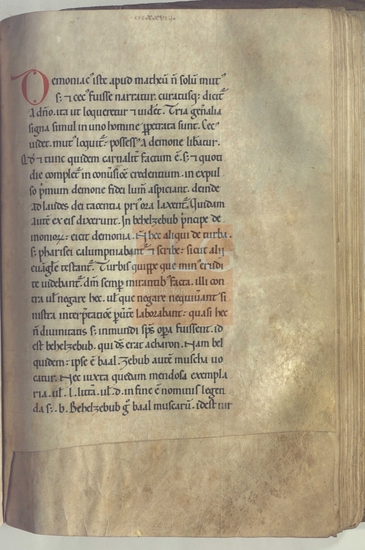 Demoniac᷒ iste apud matheũ ñ solũ mut᷒
s; ⁊ cec᷒ fuisse narratur. curatusq; dicit᷑
A dño. ita ut loqueretur ⁊ uidet᷑. Tria
signa simul in uno homine sunt. Cec᷒
uidet. mut᷒ loquit᷑. possess᷒ a demone libatur.
⁊ tunc quidem carnalit᷑ factum ẽ. s; ⁊ quoti
die in credentium. in expul
so p̄mum demone fidei lum̄ aspiciant. deinde
ad laudes dei tacentia ora laxent᷑. Quidam
autẽ ex eis dixerunt. In behelzebub p̄ncipe de
moniorꝝ eicit demonia. hec aliqui de turba.
s; pharisei calumpniabant᷑ ⁊ scribe. sicut alii
euãgłe testant᷑. Turbis quippe que min᷒ erudi
te uidebant᷑. dñi semꝑ mirantib᷒ facta. illi con
tra uł negare hec. uł que negare nequiuerant si
nistra laborabant. quasi hec
ñ diuinitatis s; inmundi sp̄s oꝑa fuissent. id
est behelzebub. qui ds̄ erat acharon. Nam bel
quidem. ipse ẽ baal. Zebub autẽ musca uo
catur. Nec iuxta quedam mendosa exempla
ria. uł .l. uł .d. in fine ẽ nominis legen
da s; .b. Behelzebub baal muscarũ. idest uir